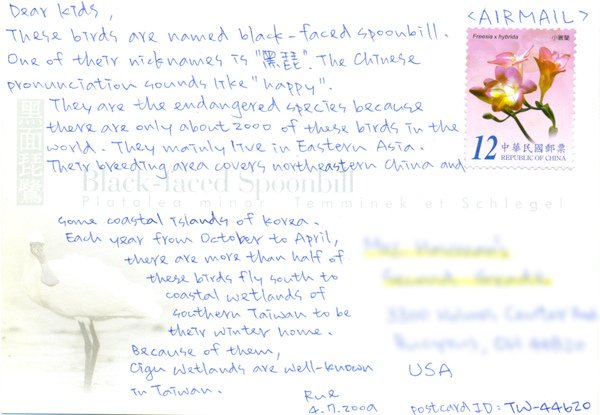 Dear kids,
<AIRMAIL>
These birds are named black-faced spoonbill.
One of their nicknames is "黑琵". The Chinese
pronunciation sounds like "happy".
They are the endangered species because
there are only about 2000 of these birds in the
world. They mainly live in Eastern Asia.
Their breeding area covers northeastern China and
some coastal islands of Korea.
Each year from October to April,
there are more than half of
these birds fly south to
coastal wetlands of
southern Taiwan to be
their winter home.
Because of them,
Cigu Wetlands are well-known
in Taiwan.
Rue
4.7.2009
Freesia x hybrida
小蒼蘭
12
中華民國郵票
REPUBLIC OF CHINA
黑面琵鷺
Black-faced Spoonbill
Platalea minor Temminck et Schlegel
USA
Postcard ID: TW-44620